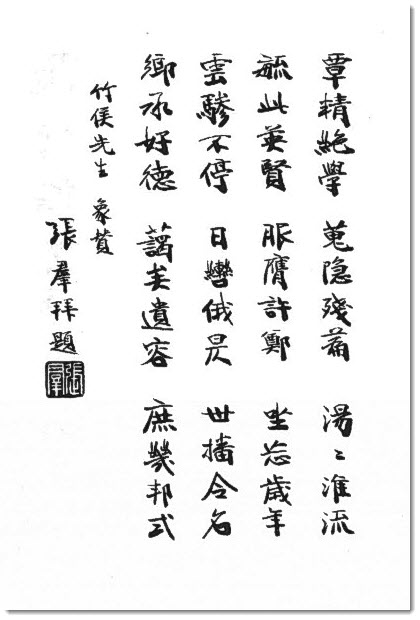 覃精絶學 蒐隐殘篇 湯〻淮流
毓此英賢 服膺許鄭 坐忘歲年
雲驂不停 日轡俄昃 世播令名
鄉承好德 藹矣遺容 庶幾邦式
竹侯先生 象贊
張羣拜題
張羣